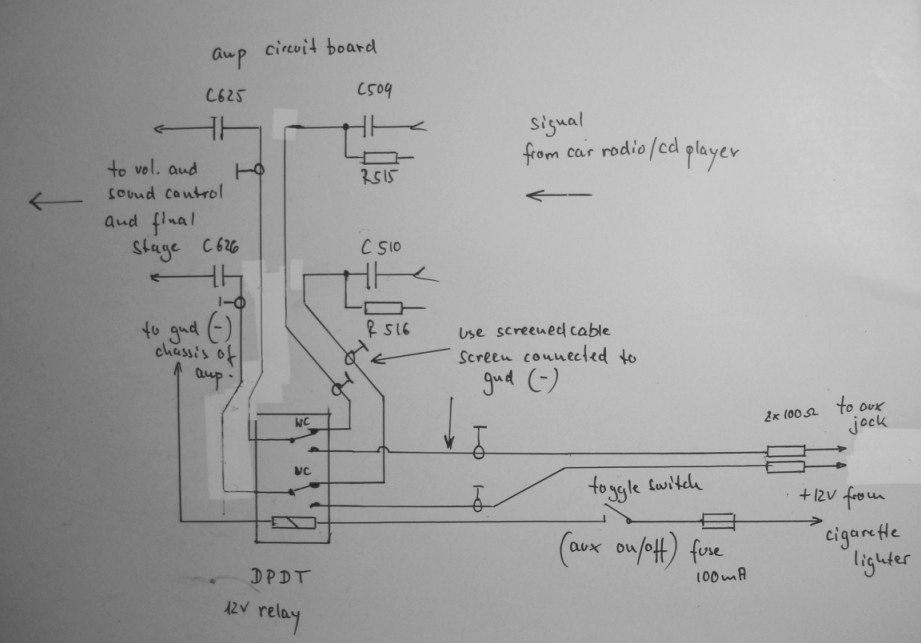 amp circuit board
C625
C509
signal
from car radio/cd player
R515
to vol. and
sound control
and final
stage
C626
C510
R516
to gnd (-)
chassis of
amp.
use screened cable
screen connected to
gnd (-)
NC
NC
2x100Ω
to aux
jock
toggle switch
+12V from
cigarette
lighter
(aux on/off)
fuse
100mA
DPDT
12V relay